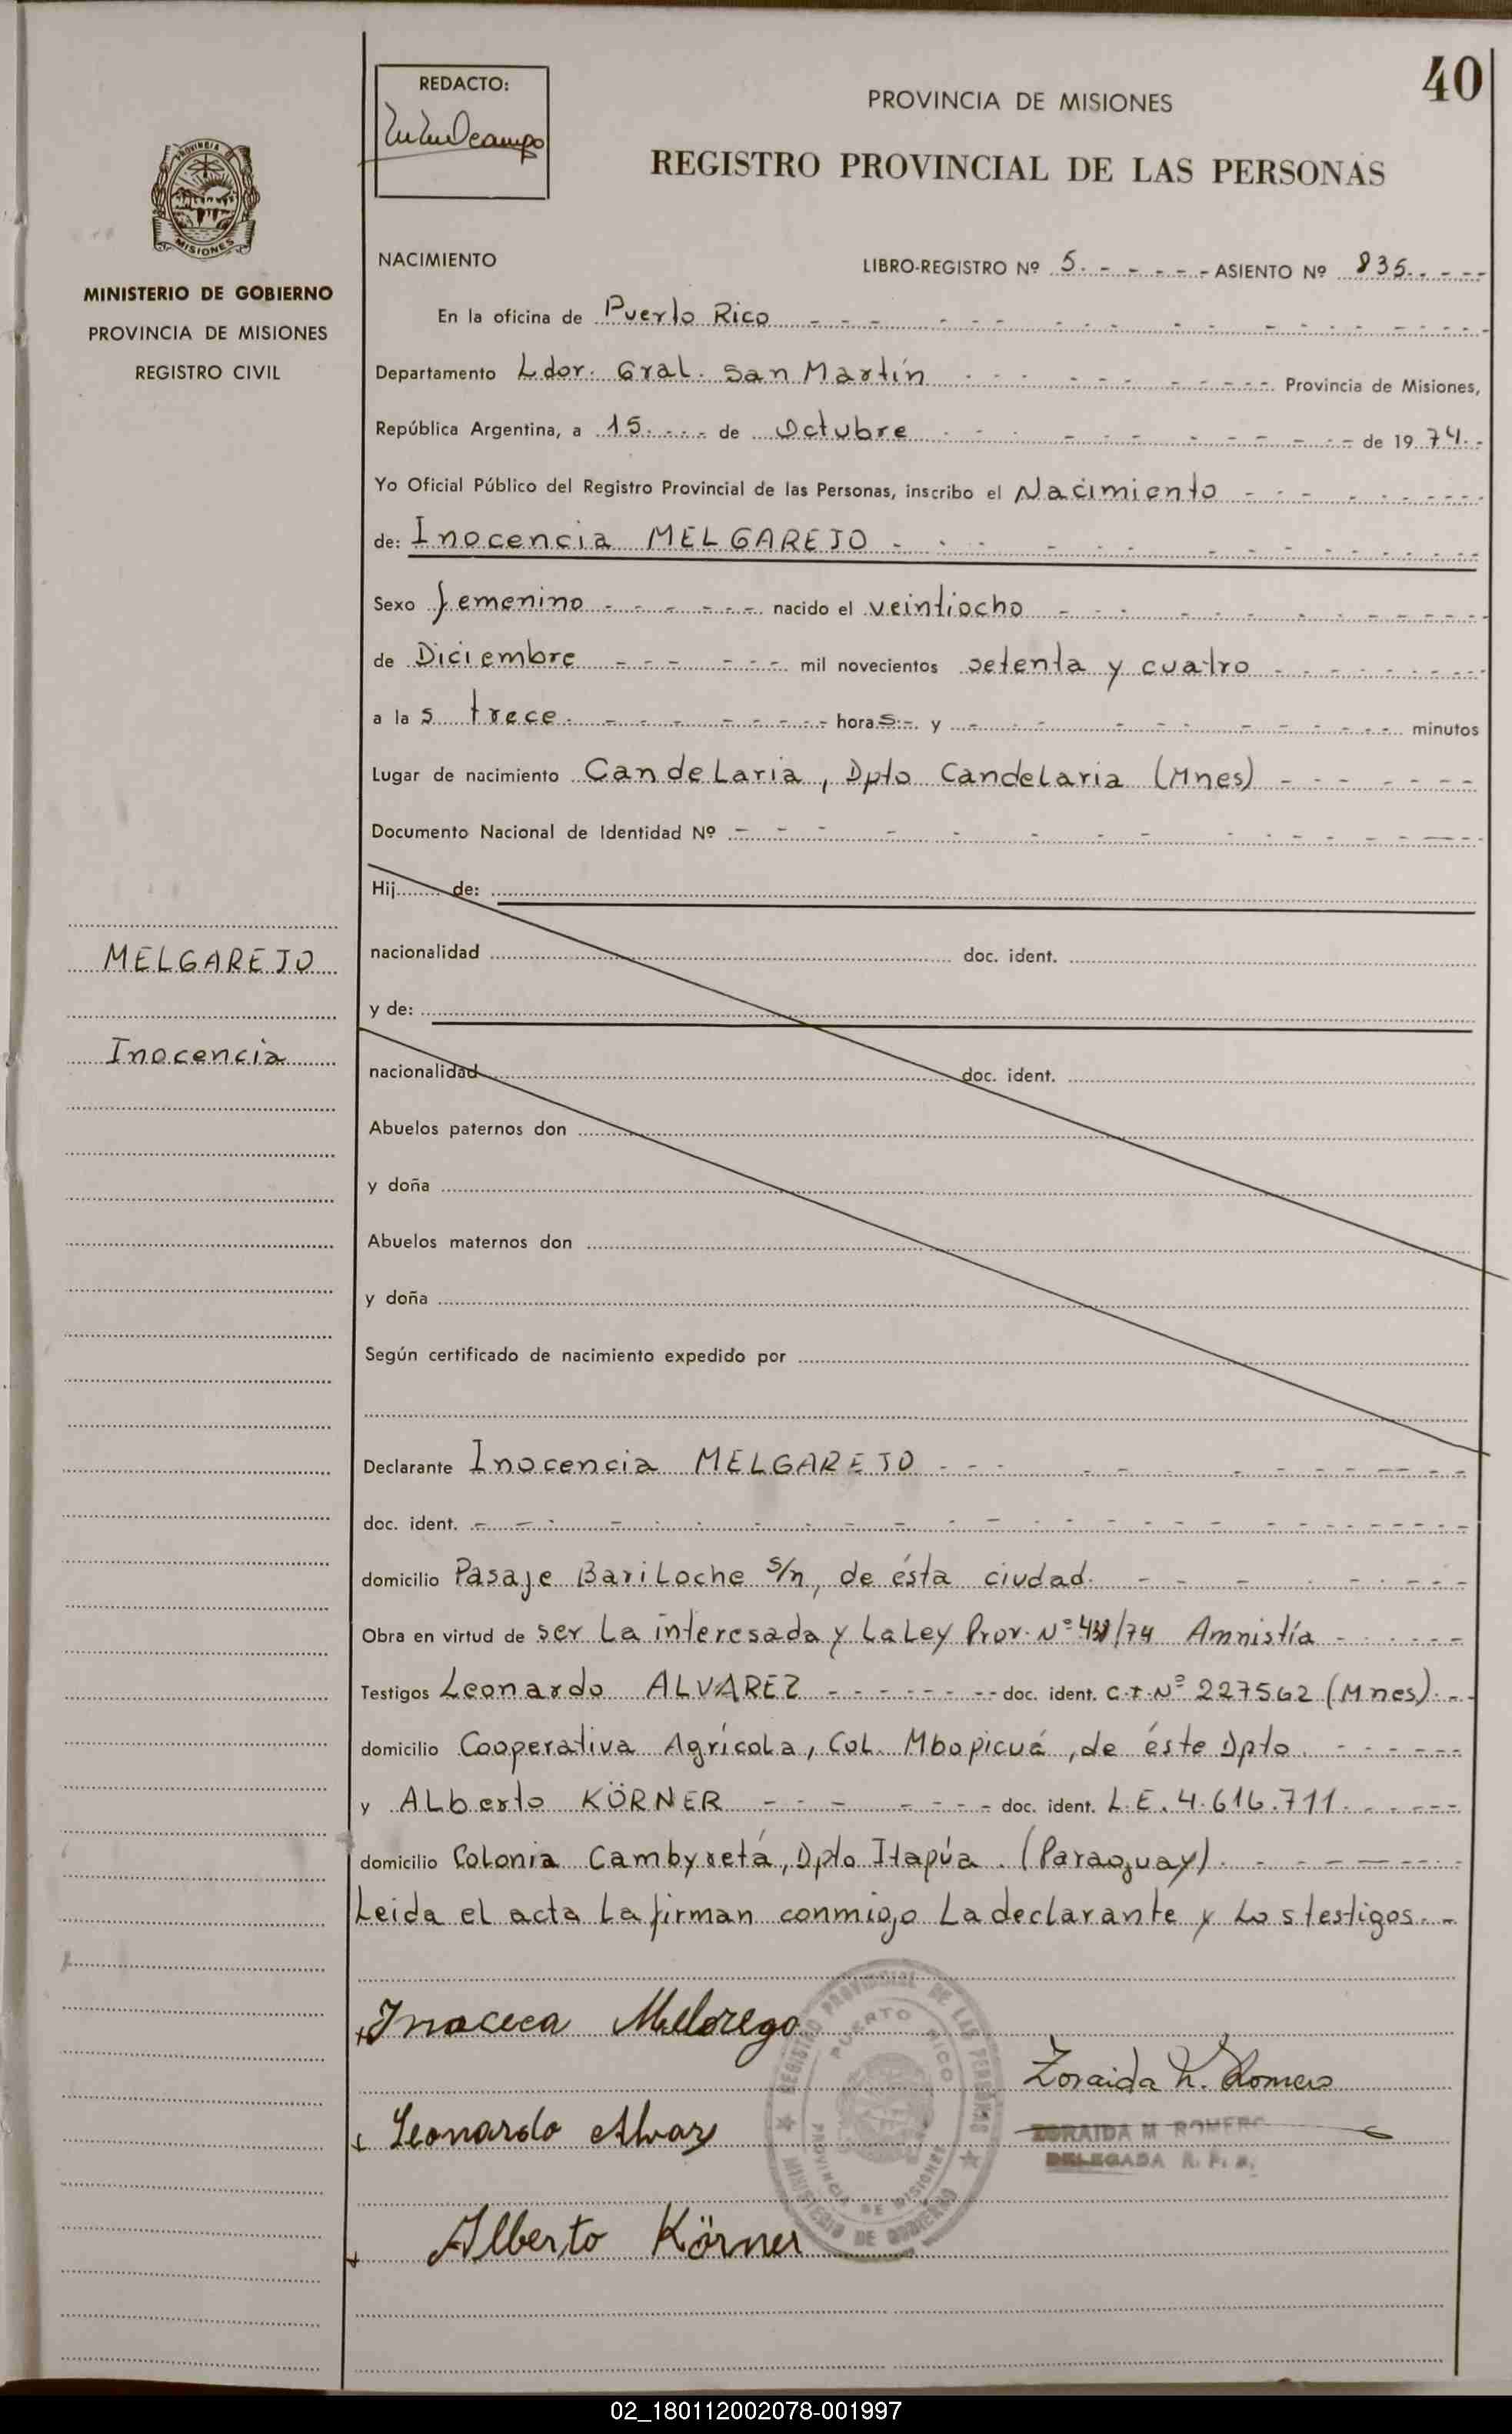 40
REDACTO:
PROVINCIA DE MISIONES
REGISTRO PROVINCIAL DE LAS PERSONAS
PROVINCIA
MISIONES
MINISTERIO DE GOBIERNO
PROVINCIA DE MISIONES
REGISTRO CIVIL
NACIMIENTO LIBRO-REGISTRO Nº 5 ASIENTO Nº 835
En la oficina de Puerto Rico
Departamento Ldor. Gral. San Martín Provincia de Misiones,
República Argentina, a 15 de Octubre de 1974
Yo Oficial Público del Registro Provincial de las Personas, inscribo el Nacimiento
de: Inocencia MELGAREJO
Sexo femenino nacido el veintiocho
de Diciembre mil novecientos setenta y cuatro
a las trece horas y minutos
Lugar de nacimiento Candelaria, Dpto Candelaria (Mnes)
Documento Nacional de Identidad Nº
Hij de:
nacionalidad doc. ident.
y de:
nacionalidad doc. ident.
Abuelos paternos don
y doña
Abuelos maternos don
y doña
Según certificado de nacimiento expedido por
MELGAREJO
Inocencia
Declarante Inocencia MELGAREJO
doc. ident.
domicilio Pasaje Bariloche s/n, de ésta ciudad.
Obra en virtud de ser La interesada y La Ley Prov. Nº /74 Amnistía
Testigos Leonardo ALVAREZ doc. ident. C.I. Nº 227562 (Mnes).
domicilio Cooperativa Agrícola, Col. Mbopicuá, de éste Dpto.
y Alberto KÖRNER doc. ident. L.E. 4.616.711
domicilio Colonia Cambyretá, Dpto Itapúa. (Paraguay).
Leida el acta La firman conmigo La declarante y Los testigos.
Leonardo Alvarz
Alberto Körner
Zoraida M. Romero
ZORAIDA M ROMERO
DELEGADA R. P. P.
REGISTRO PROVINCIAL DE LAS PERSONAS
PUERTO RICO
PROVINCIA DE MISIONES
MINISTERIO DE GOBIERNO
02_180112002078-001997